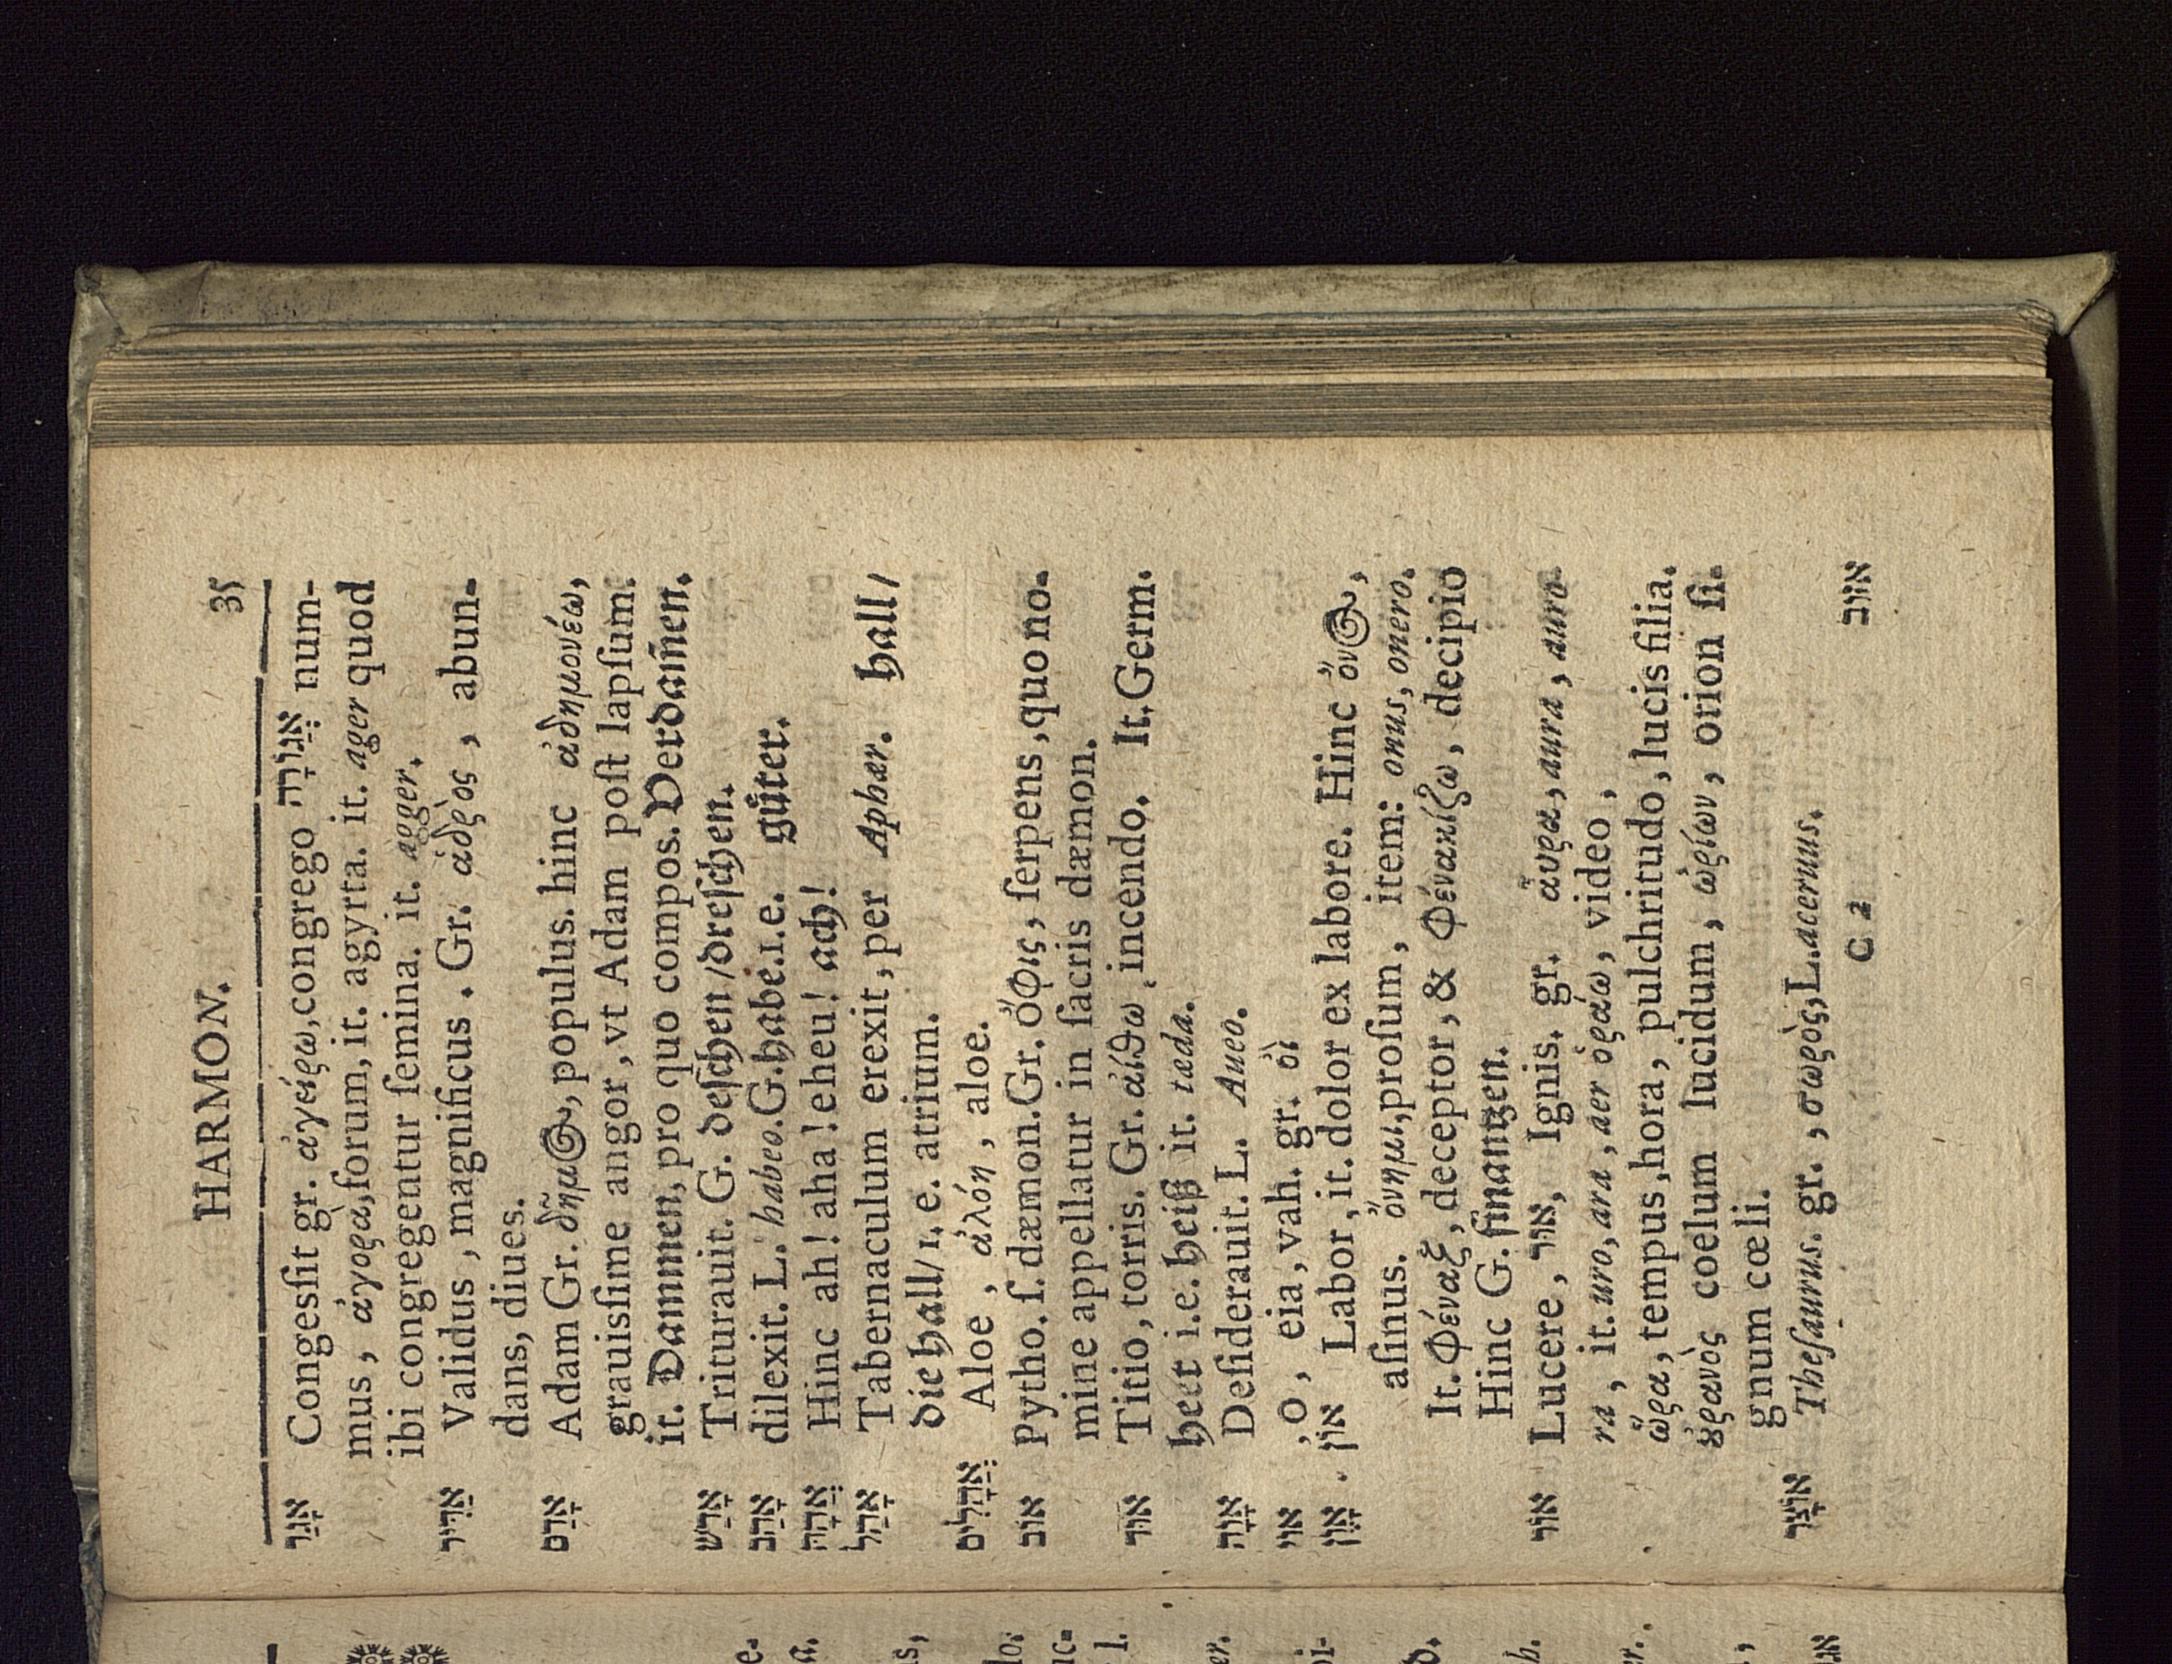 HARMON. 35
אָגַר Congesſit gr. ἀγείρω, congrego אֲגוֹרָה num-
mus, ἀγορὰ, forum, it. agyrta. it. ager quod
ibi congregentur ſemina. it. agger.
אַדִּיר Validus, magnificus. Gr. ἁδρὸς, abun-
dans, diues.
אָדַם Adam Gr. δῆμος, populus. hinc ἀδημονέω,
grauisſime angor, vt Adam poſt lapſum.
it. Dammen, pro quo compos. Verdam̃en.
אָדַשׁ Triturauit. G. deſchen / dreſchen.
אָהַב dilexit. L. habeo. G. habe. i.e. guͤter.
אֲהָהּ Hinc ah! aha! eheu! ach!
אָהַל Tabernaculum erexit, per Aphær. hall /
die hall / i. e. atrium.
אֲהָלִים Aloe, ἀλόη, aloe.
אוֹב Pytho. ſ. dæmon. Gr. ὄφις, ſerpens, quo no-
mine appellatur in ſacris dæmon.
אוּד Titio, torris. Gr. αἴθω, incendo. It. Germ.
heet i.e. heiß it. tæda.
אָוָה Deſiderauit. L. Aueo.
אוֹי, o, eia, vah. gr. οἲ
אָוֶן. אוֹן Labor, it. dolor ex labore. Hinc ὄνος,
aſinus. ὄνημι, proſum, item: onus, onero.
It. Φέναξ, deceptor, & Φενακίζω, decipio
Hinc G. finantzen.
אוֹר Lucere, אוּר, Ignis. gr. αὔρα, aura, auro-
ra, it. uro, ara, aer ὁράω, video,
ὥρα, tempus, hora, pulchritudo, lucis filia.
ȣ̓ρανὸς coelum lucidum, ὠρίων, orion ſi-
gnum cœli.
אוֹצָר Theſaurus. gr., σωρὸς, L. aceruus.
C 2 אזוב